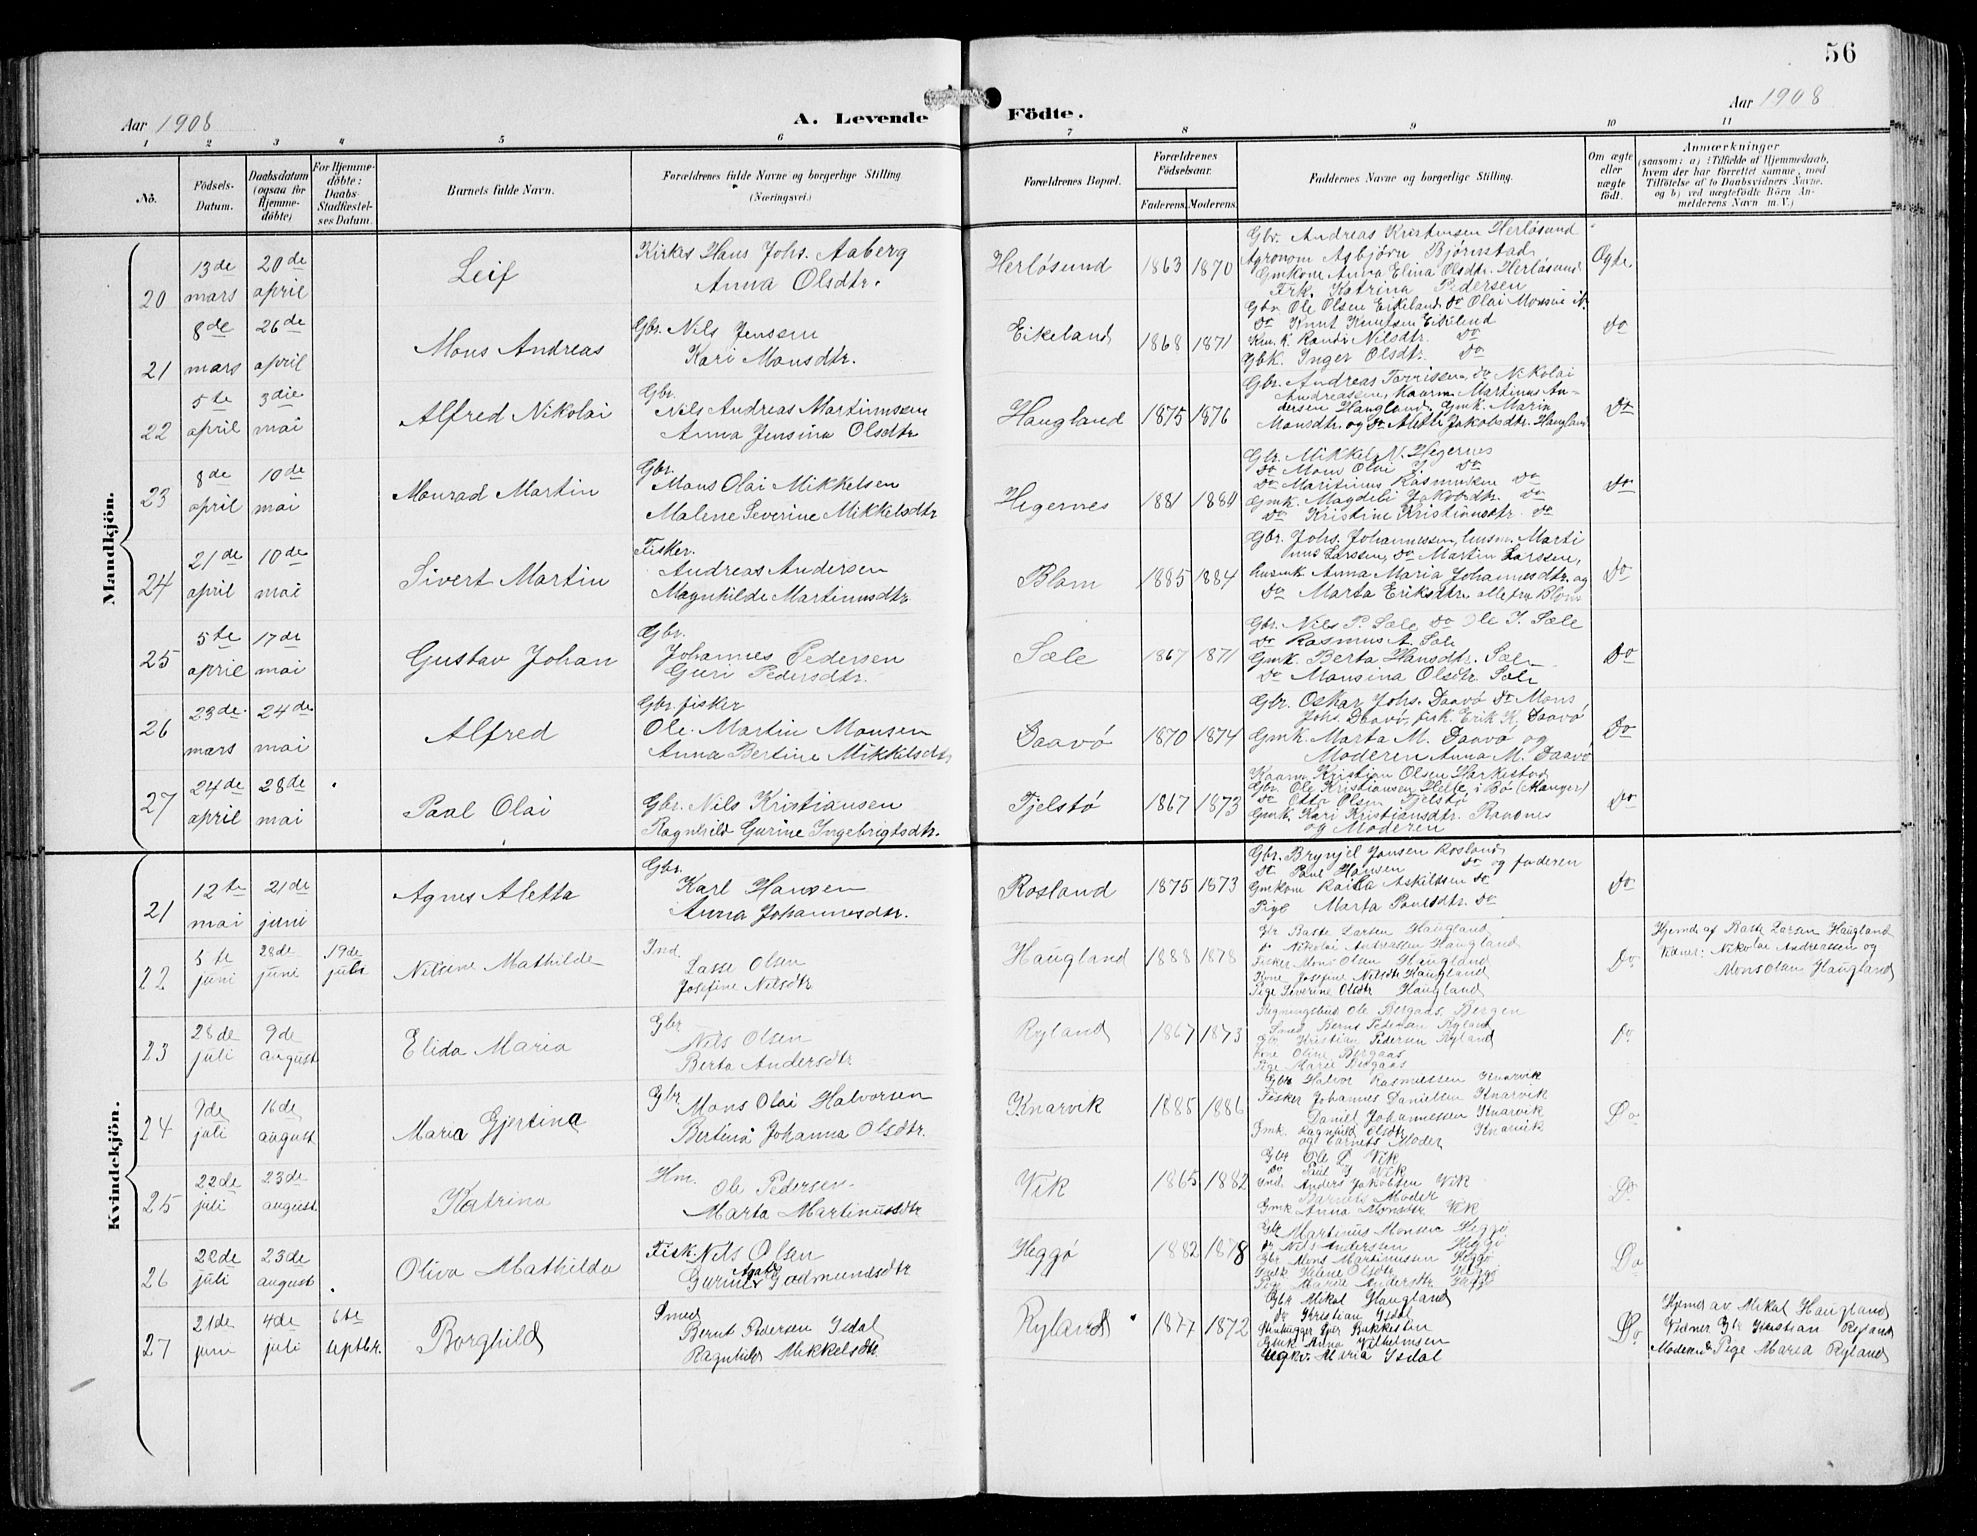 56
Aar 1908
A. Levende Födte.
Aar 1908
1 2 3 4 5 6 7 8 9 10 11
No.
Födsels-Datum.
Daabsdatum (ogsaa for Hjemme-döbte)
For Hjemme-döbte: Daabs Stadfæstel-ses Datum.
Barnets fulde Navn.
Forældrenes fulde Navne og borgerlige Stilling
(Næringsvei.)
Forældrenes Bopæl.
Forældrenes Födselsaar.
Faderens. Moderens.
Faddernes Navne og borgerlige Stilling.
Om ægte eller uægte födt.
Anmærkninger
(saasom: a) i Tilfælde af Hjemmedaab,
hvem der har forrettet samme, med
Tilföielse af to Daabsvidners Navne,
og b) ved uægtefödte Börn An-
melderens Navn m. V.)
Mandkjön.
20
13de mars
20de april
Leif
Kirkes Hans Johs. Aaberg
Anna Olsdtr.
Herløsund
1863 1870
Gbr. Andreas Kristensen Herløsund
Agronom Asbjörn Björnstad
Gmkone Anna Elina Olsdtr. Herløsund
Frk. Katrina Pedersen
Ogte
21
8de mars
26de april
Mons Andreas
Gbr. Nils Jenssen
Kari Monsdtr.
Eikeland
1868 1871
Gbr. Ole Olsen Eikeland Do Olai Monsen
Do Knut Knutsen Eikeland
Randi Nilsdtr. Do
Gbk. Inger Olsdtr. Do
Do
22
5te april
3die mai
Alfred Nikolai
Gbr.
Nils Andreas Martinussen
Anna Jensina Olsdtr
Haugland
1875 1876
Gbr. Andreas Torrisen, Do Nikolai
Andreassen, Kaarm. Martinus An-
dersen Haugland, Gmk. Marin
Monsdtr. og Do Alette Jakobsdtr. Haugland
Do
23
8de april
10de mai
Monrad Martin
Gbr.
Mons Olai Mikkelsen
Malene Severine Mikkelsdtr
Hegernes
1881 1884
Gbr. Mikkel N. Hegernes
Do Mons Olai J. Do
Do Martinus Rasmussen Do
Gmk. Magdeli Jakobsdtr. Do
Do Kristine Kristiansdtr. Do
Do
24
21de april
10de mai
Sivert Martin
Fisker.
Andreas Andersen
Magnhilde Martinusdtr
Blom
1885 1884
Gbr. Johs. Johannessen, husm. Marti
nus Larssen, Do Martin Larssen,
husmk Anna Maria Johannesdtr. og
Do Marta Eriksdtr. alle fra Blom
Do
25
5te april
17de mai
Gustav Johan
Gbr.
Johannes Pedersen
Guri Pedersdtr.
Sæle
1867 1871
Gbr. Nils P. Sæle Do Ole J. Sæle
Do Rasmus A. Sæle
Gmk. Berta Hansdtr. Sæle
Do Monsina Olsdtr. Sæle
Do
26
23de mars
24de mai
Alfred
Gbr. fisker
Ole Martin Monsen
Anna Bertine Mikkelsdtr
Daavø
1870 1874
Gbr. Oskar Johs. Daavø Do Mons
Johs. Daavø, fisk. Erik K. Daavø
Gmk. Marta M. Daavø og
Moderen Anna M. Daavø
Do
27
24de april
28de mai
Paal Olai
Gbr. Nils Kristiansen
Ragnhild Gurine Ingebrigtsdtr.
Fjelstø
1867 1873
Kaarm Kristian Olsen Harkestad
Gbr. Ole Kristiansen Helle i Bø (Manger)
Do Otto Olsen Fjelstø
Gmk. Kari Kristiansdtr. Randnes
og Moderen
Do
Kvindekjön.
21
12te mai
21de juni
Agnes Aletta
Gbr.
Karl Hansen
Anna Johannesdtr.
Rosland
1875 1873
Gbr. Brynjel Jonsen Rosland
Do Paul Hansen Do og faderen
Gmkone Askildsen Do
Pige Marta Paulsdtr. Do
Do
22
5te juni
28de juni
19de juli
Nilsine Mathilde
Ind.
Lasse Olsen
Josefine Nilsdtr
Haugland
1888 1878
Gbr Baste Larsen Haugland
Do Nikolai Andreassen Haugland
Fisker Mons Olsen Haugland
Kone Josefine Nilsdtr Haugland
Pige Severine Olsdtr Haugland
Do
Hjemd af Baste Larsen Haugland
Vidner: Nikolai Andreassen og
Mons Olsen Haugland
23
28de juli
9de august
Elida Maria
Gbr
Nils Olsen
Berta Andersdtr
Ryland
1867 1873
Regningsbud Ole Bergaas, Bergen
Smed Bernt Pedersen Ryland
Gbr Kristian Pedersen Ryland
Kone Oline Bergaas
Pige Marie Bergaas
Do
24
7de juli
16de august
Maria Gjertina
Gbr
Mons Olai Halvorsen
Bertina Johanna Olsdtr.
Knarvik
1885 1886
Gbr Halvor Rasmussen Knarvik
Fisker Johannes Danielsen Knarvik
Daniel Johannessen Knarvik
Gmk. Ragnhild Olsdtr Knarvik
og Barnets Moder
Do
25
22de juli
23de august
Katrina
Hm.
Ole Pedersen
Marta Martinusdtr
Vik
1865 1882
Gbr Ole P Vik
Do Paul J Vik
Ind. Anders Jakobsen Vik
Barnets Moder
Gmk Anna Monsdtr Vik
Do
26
22de juli
23de august
Oliva Mathilda
Fisk. Nils Olsen
Gurine Agate Godmundsdtr
Heggø
1882 1878
Gbr Martinus Monsen Heggø
Do Nils Andersen Heggø
Gbr Mons Martinussen Heggø
Gmk Helene Olsdtr Heggø
Pige Maria Andersdtr Heggø
Do
27
21de juni
4de juli
6te septbr.
Borghild
Smed
Bernt Pedersen Isdal
Ragnhild Mikkelsdtr
Ryland
1877 1872
Gbr Mikal Haugland
Do Kristian Isdal
Stenhugger Iver Bakketun
Gmk Anna Vilhelmsen
Ugkv. Maria Isdal
Do
Hjemd av Mikal Haugland
Vidner Gbr Kristian Ryland
Moder & Pige Maria Ryland